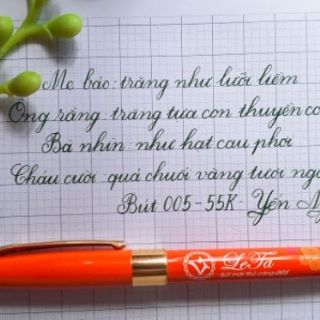 Mẹ bảo: trăng như lưỡi liềm
Ông rằng: trăng tựa con thuyền co
Bà nhìn: như hạt cau phơi
Cháu cười: quả chuối vàng tươi ngo
Bút 005-55K - Yến
Lê Tâ